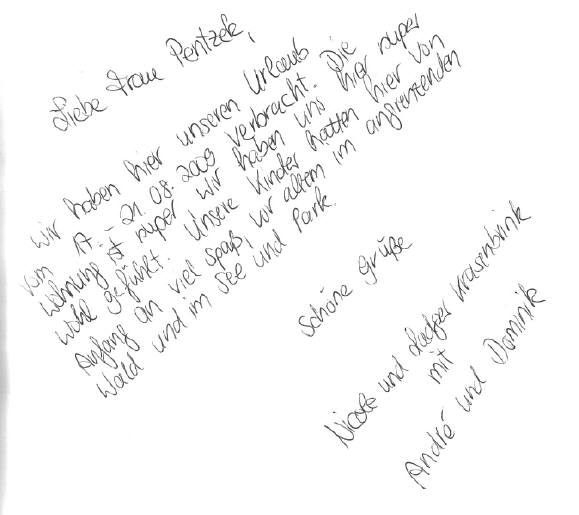 Liebe Frau Pentzek,
wir haben hier unseren Urlaub
vom 17. - 21.08.2009 verbracht. Die
Wohnung ist super wir haben uns hier super
wohl gefühlt. Unsere Kinder hatten hier von
Anfang an viel Spaß, vor allem im angrenzenden
Wald und im See und Park.
Schöne Grüße
Nicole und Ludger Krasenbrink
mit
André und Dominik